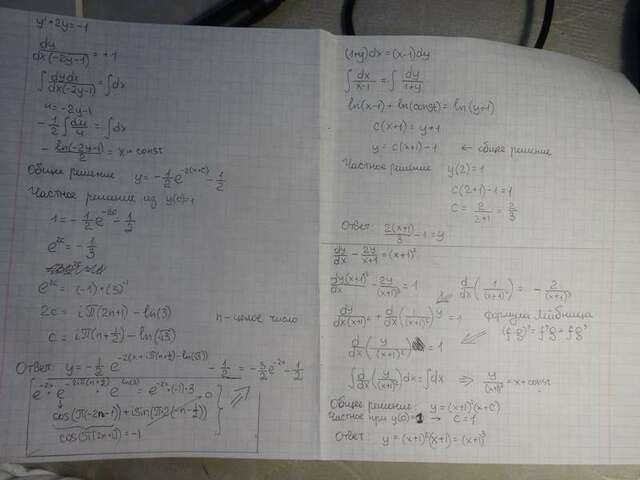 y'+2y=-1
dy/dx(-2y-1) = +1
∫ dydx/dx(-2y-1) = ∫dx
u=-2y-1
-1/2 ∫ du/u = ∫dx
- ln(-2y-1)/2 = x + const
Общее решение y = -1/2 e^{-2(x+c)} - 1/2
Частное решение из y(0)=1
1 = -1/2 e^{-2c} - 1/2
e^{2c} = -1/3
e^{2c} = (-1)·(3)^{-1}
2c = iπ(2n+1) - ln(3)
n-целое число
c = iπ(n+1/2) - ln(√3)
Ответ: y = -1/2 e^{-2(x+iπ(n+1/2)-ln(√3))} - 1/2 = -3/2 e^{-2x} - 1/2
e^{-2x} · e^{-2iπ(n+1/2)} · e^{ln(3)} = e^{-2x}·(-1)·3
cos(π(-2n-1)) + iSin(π2(-n-1/2))
0
cos(π(2n+1)) = -1
(1+y)dx = (x-1)dy
∫ dx/x-1 = ∫ dy/1+y
ln(x-1) + ln(const) = ln(y+1)
c(x+1) = y+1
y = c(x+1)-1 ← общее решение
Частное решение y(2)=1
c(2+1)-1=1
c = 2/2+1 = 2/3
Ответ: 2(x+1)/3 - 1 = y
dy/dx - 2y/x+1 = (x+1)²
dy/dx(x+1)² - 2y/(x+1)³ = 1 d/dx(1/(x+1)²) = - 2/(x+1)³
dy/dx(x+1)² + d/dx(1/(x+1)²)y = 1 формула Лейбница
(fg)' = f'g + fg'
d/dx(y/(x+1)²) = 1
∫ d/dx(y/(x+1)²)dx = ∫dx ⇒ y/(x+1)² = x + const
Общее решение: y = (x+1)²(x+c)
Частное при y(0)=1 → c=1
Ответ: y = (x+1)²(x+1) = (x+1)³